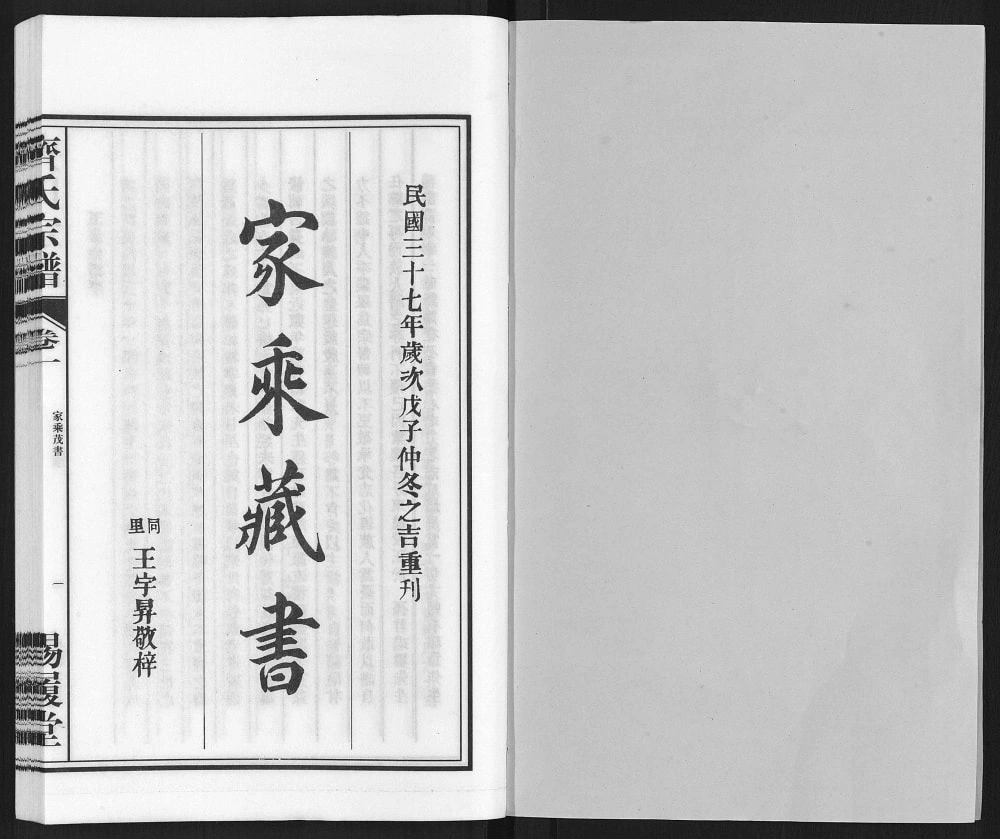 民國三十七年歲次戊子仲冬之吉重刊
家乘藏書
同里
王宇昇敬梓
齊氏宗譜
卷一
家乘茂書
一
賜履堂